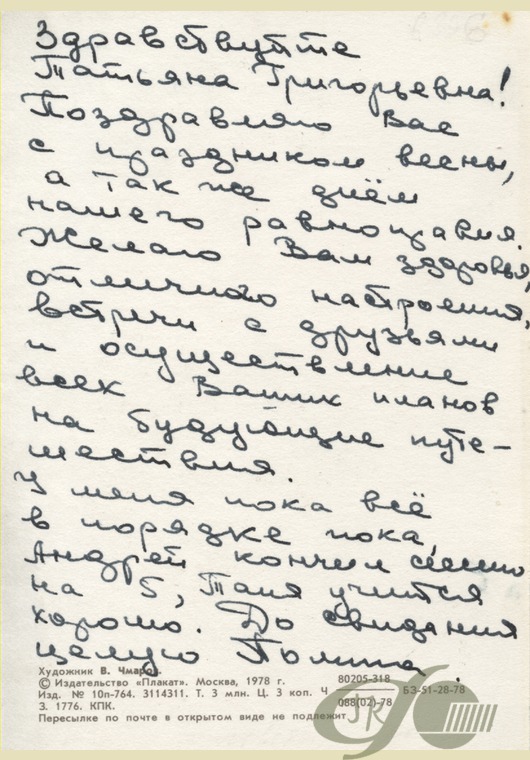 Здравствуйте
Татьяна Григорьевна!
Поздравляю Вас
с праздником весны,
а так же днём
нашего равноправия.
Желаю Вам здоровья,
отличного настроения,
встречи с друзьями
и осуществление
всех Ваших планов
на будующие путе-
шествия.
У меня пока всё
в порядке пока,
Андрей кончил сессию
на 5, Таня учится
хорошо. До свидания
целую Полина.
Художник В. Чмаров.
© Издательство «Плакат». Москва, 1978 г.
Изд. № 10п-764. 3114311. Т. 3 млн. Ц. 3 коп. Ч 80205-318 088(02)-78 БЗ-51-28-78
З. 1776. КПК.
Пересылке по почте в открытом виде не подлежит